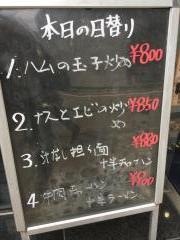 本日の日替り
1. ハムの玉子炒め ¥800
2. ナスとエビの炒め ¥850
3. 汁なし担々麺 ¥880
半チャーハン
4. 中国 ¥900
半ラーメン